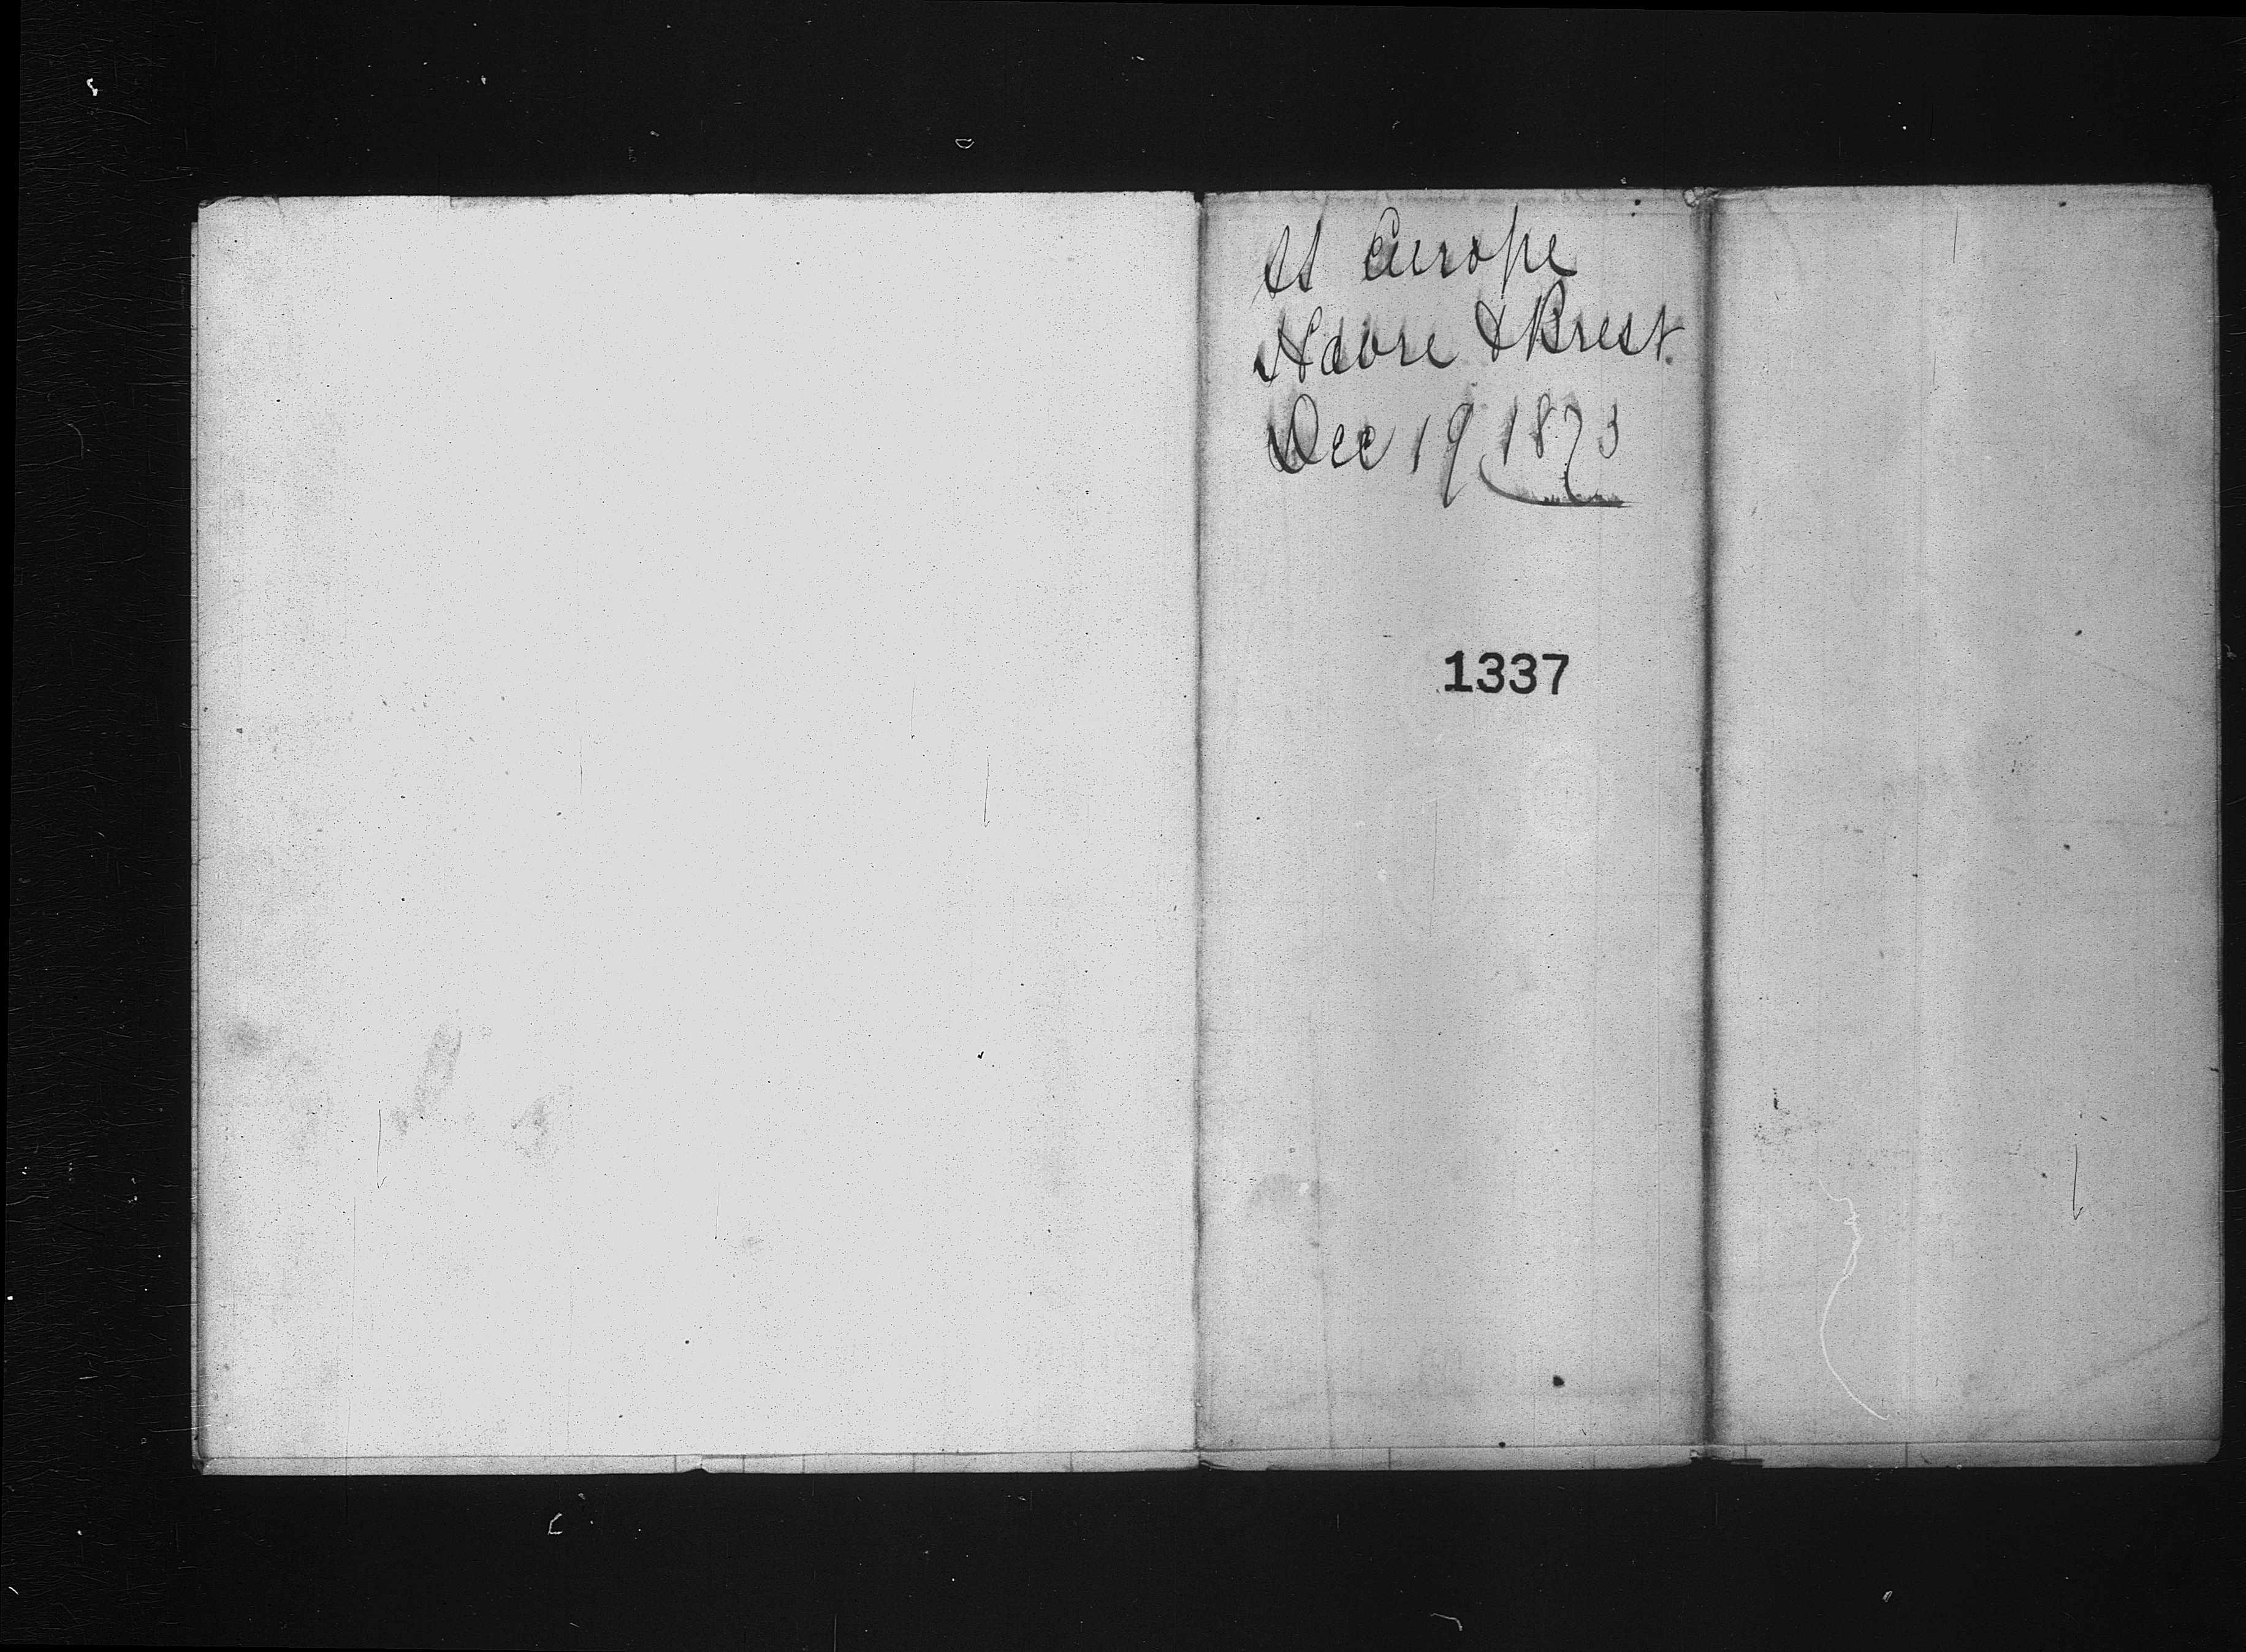 SS Europe
Havre & Brest.
Dec 19 1873
1337